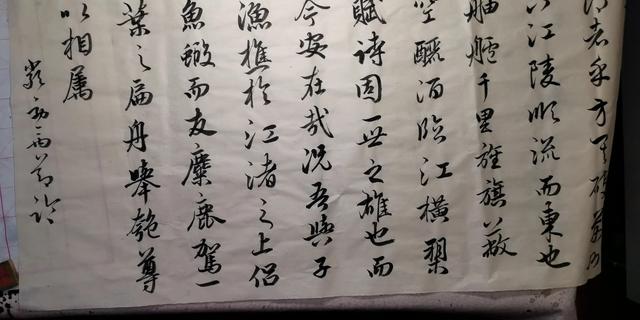 者乎方其破荊州
下江陵順流而東也
舳艫千里旌旗蔽
空釃酒臨江橫槊
賦詩固一世之雄也而
今安在哉況吾與子
漁樵於江渚之上侶
魚鰕而友麋鹿駕一
葉之扁舟舉匏尊
以相属